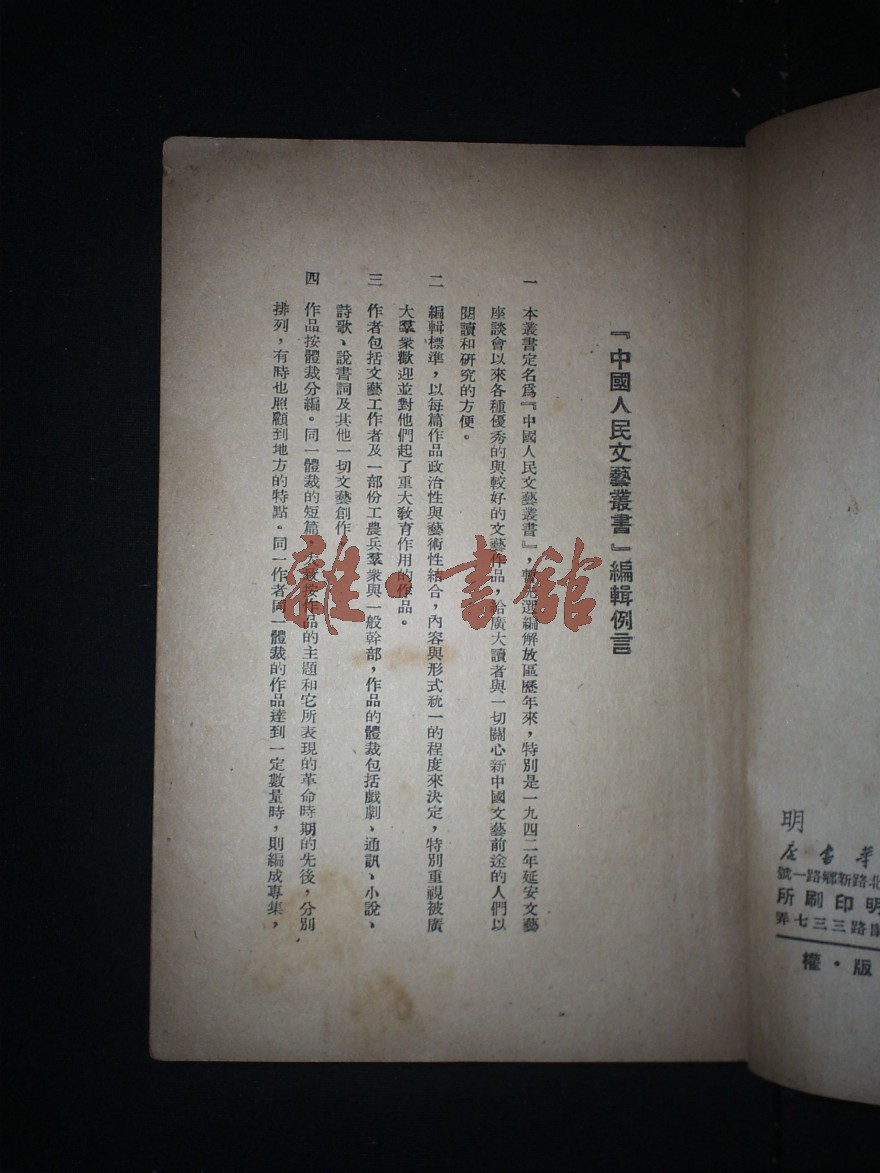 『中國人民文藝叢書』編輯例言
一 本叢書定名爲『中國人民文藝叢書』，選編解放區歷年來，特別是一九四二年延安文藝
座談會以來各種優秀的與較好的文藝作品，給廣大讀者與一切關心新中國文藝前途的人們以
閱讀和研究的方便。
二 編輯標準，以每篇作品政治性與藝術性結合，內容與形式統一的程度來決定，特別重視被廣
大羣衆歡迎並對他們起了重大教育作用的作品。
三 作者包括文藝工作者及一部份工農兵羣衆與一般幹部，作品的體裁包括戲劇、通訊、小說、
詩歌、說書詞及其他一切文藝創作。
四 作品按體裁分編。同一體裁的短篇，大致按作品的主題和它所表現的革命時期的先後，分別
排列，有時也照顧到地方的特點。同一作者同一體裁的作品達到一定數量時，則編成專集，
明
華書店
北路新鄉路一號
明印刷所
路三三七弄
版・權
雜·書館